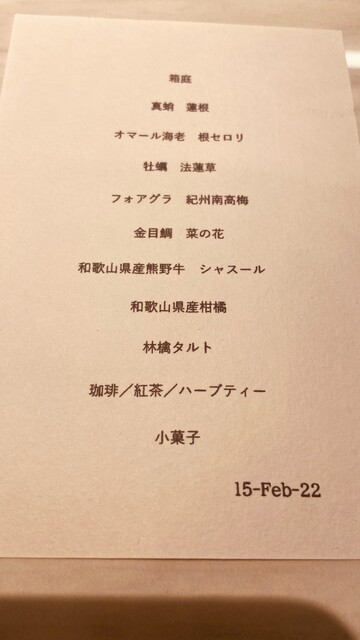 箱庭
真蛸　蓮根
オマール海老　根セロリ
牡蠣　法蓮草
フォアグラ　紀州南高梅
金目鯛　菜の花
和歌山県産熊野牛　シャスール
和歌山県産柑橘
林檎タルト
珈琲／紅茶／ハーブティー
小菓子
15-Feb-22